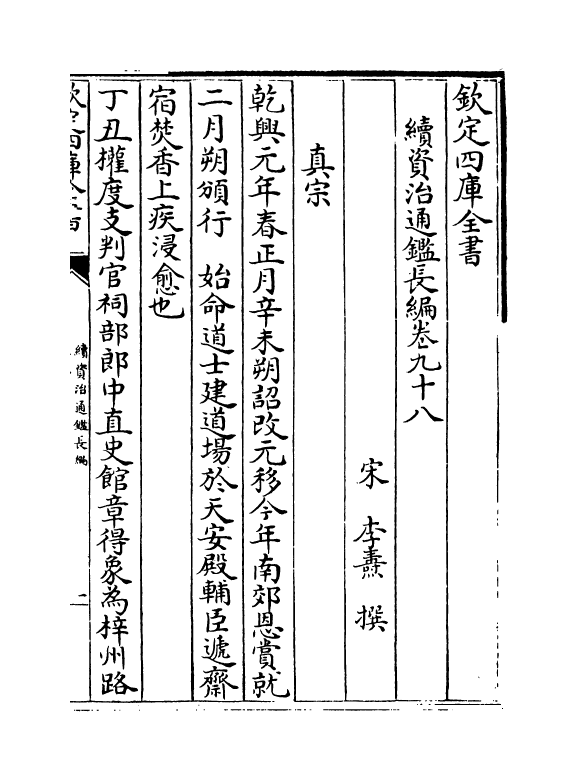 欽定四庫全書
續資治通鑑長編卷九十八
宋 李燾 撰
真宗
乾興元年春正月辛未朔詔改元移今年南郊恩賞就
二月朔頒行 始命道士建道場於天安殿輔臣遞齋
宿焚香上疾浸愈也
丁丑擢度支判官祠部郎中直史館章得象為梓州路
續資治通鑑長編